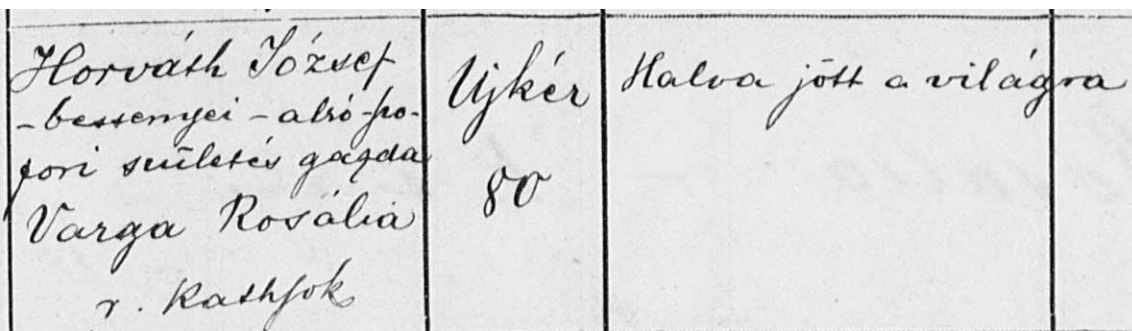 Horváth József
- bessenyei - alsó-po-
fori születés gazda
Varga Rosália
r. kathjok
Ujkér
80
Halva jött a világra